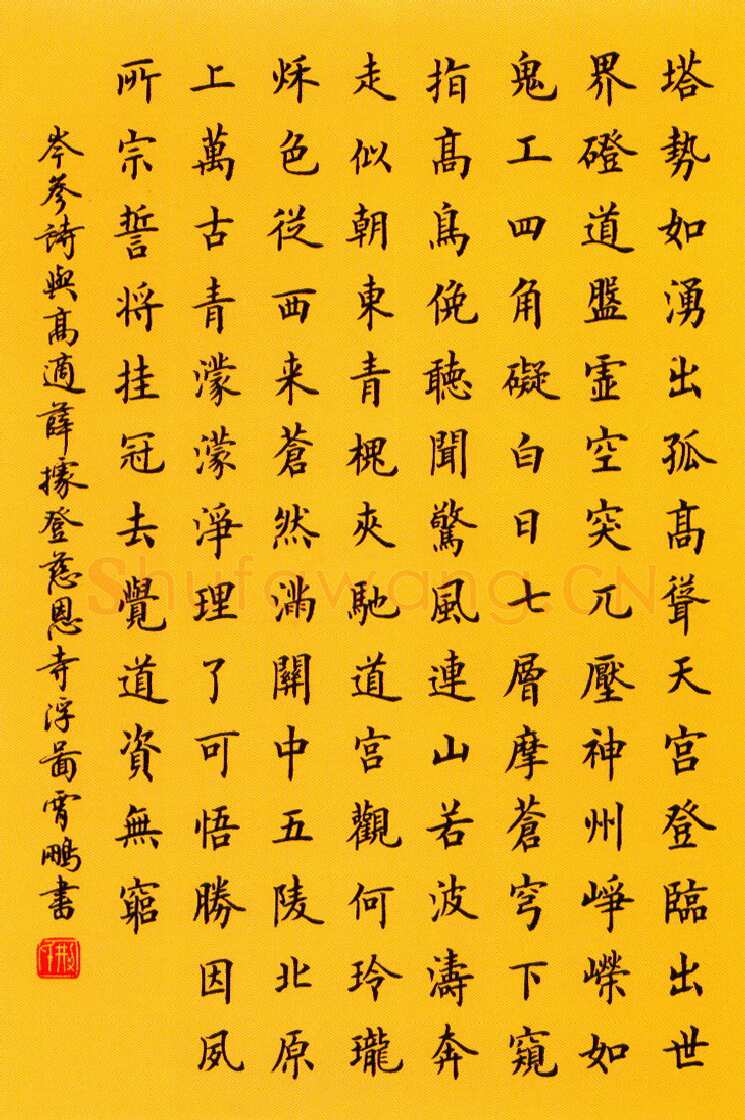 塔勢如湧出孤髙聳天宮登臨出世
界磴道盤虛空突兀壓神州崢嶸如
鬼工四角礙白日七層摩蒼穹下窺
指髙鳥俛聽聞驚風連山若波濤奔
走似朝東青槐夾馳道宮觀何玲瓏
秌色從西来蒼然滿關中五陵北原
上萬古青濛濛淨理了可悟勝因夙
所宗誓将挂冠去覺道資無窮
岑參詩與髙適薛據登慈恩寺浮啚霄鵬書
Shufawang.CN